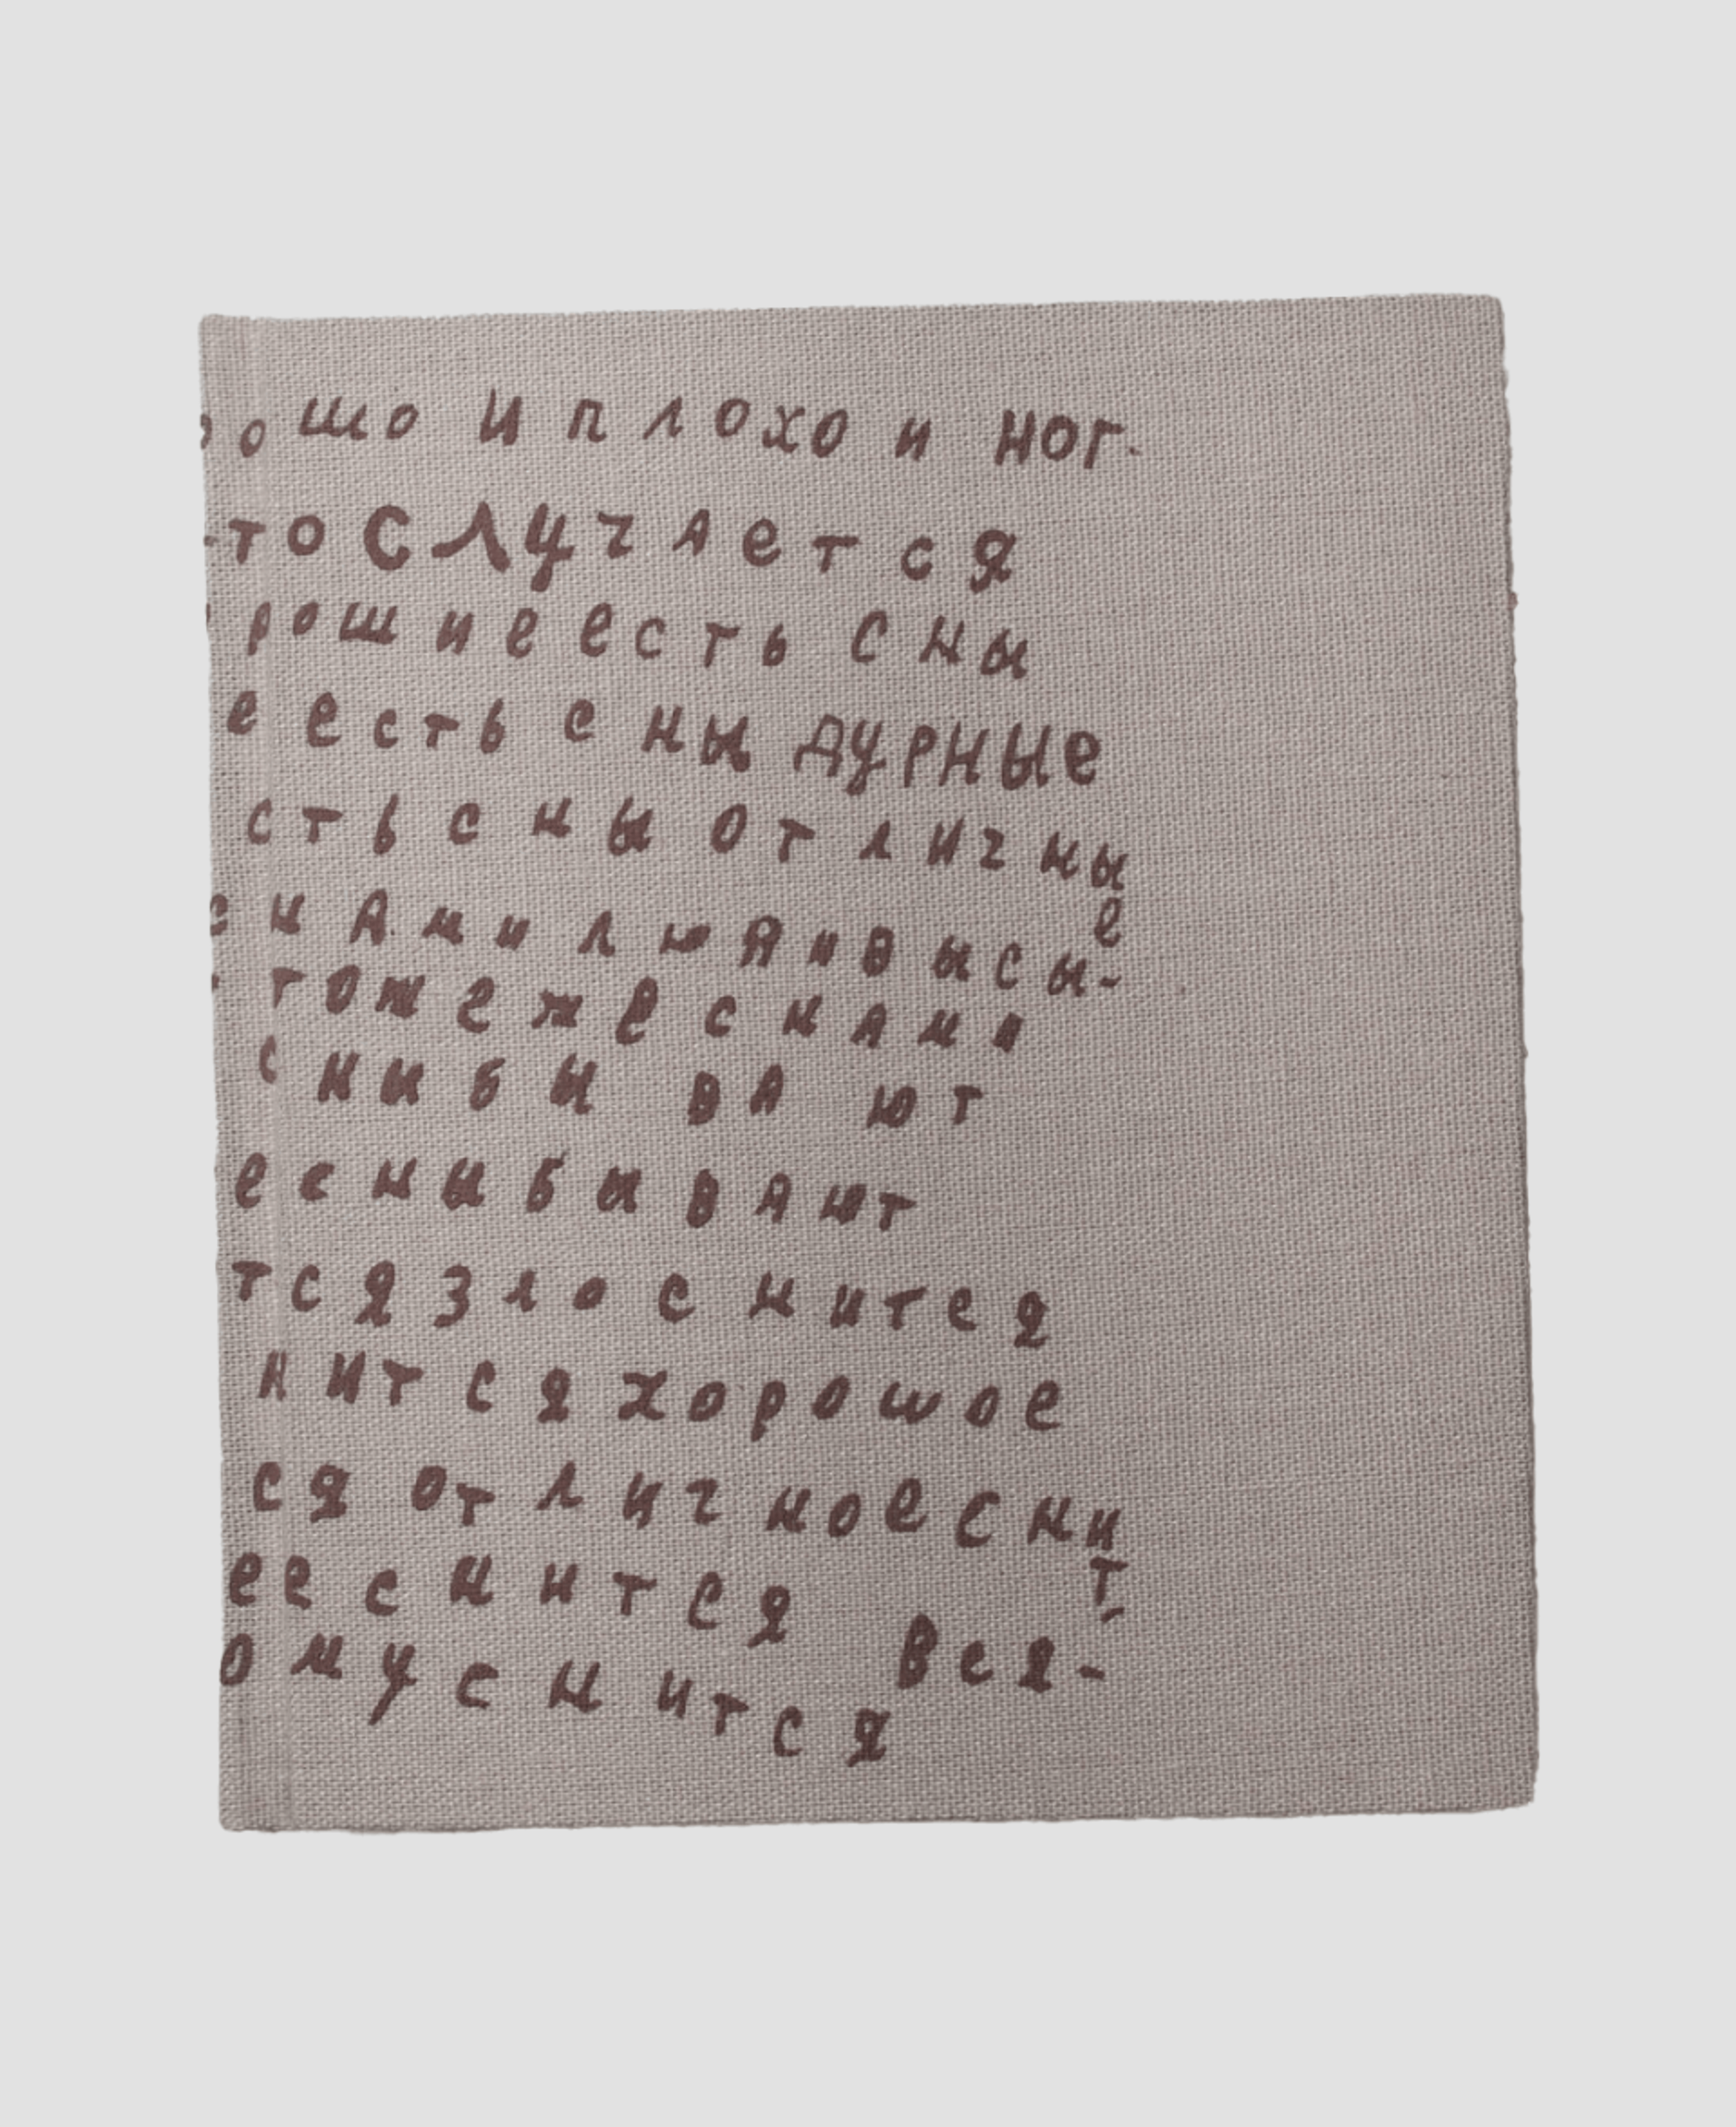 ошо и плохо и ног-
-то случается
рошие есть сны
е есть сны дурные
сть сны отличны
е
снами люяи высы-
тоже же снами
сни бы ва ют
е сни бывают
тся зло снится
нится хорошое
ся отличное сни
т-
ее снится Вся-
ому снится